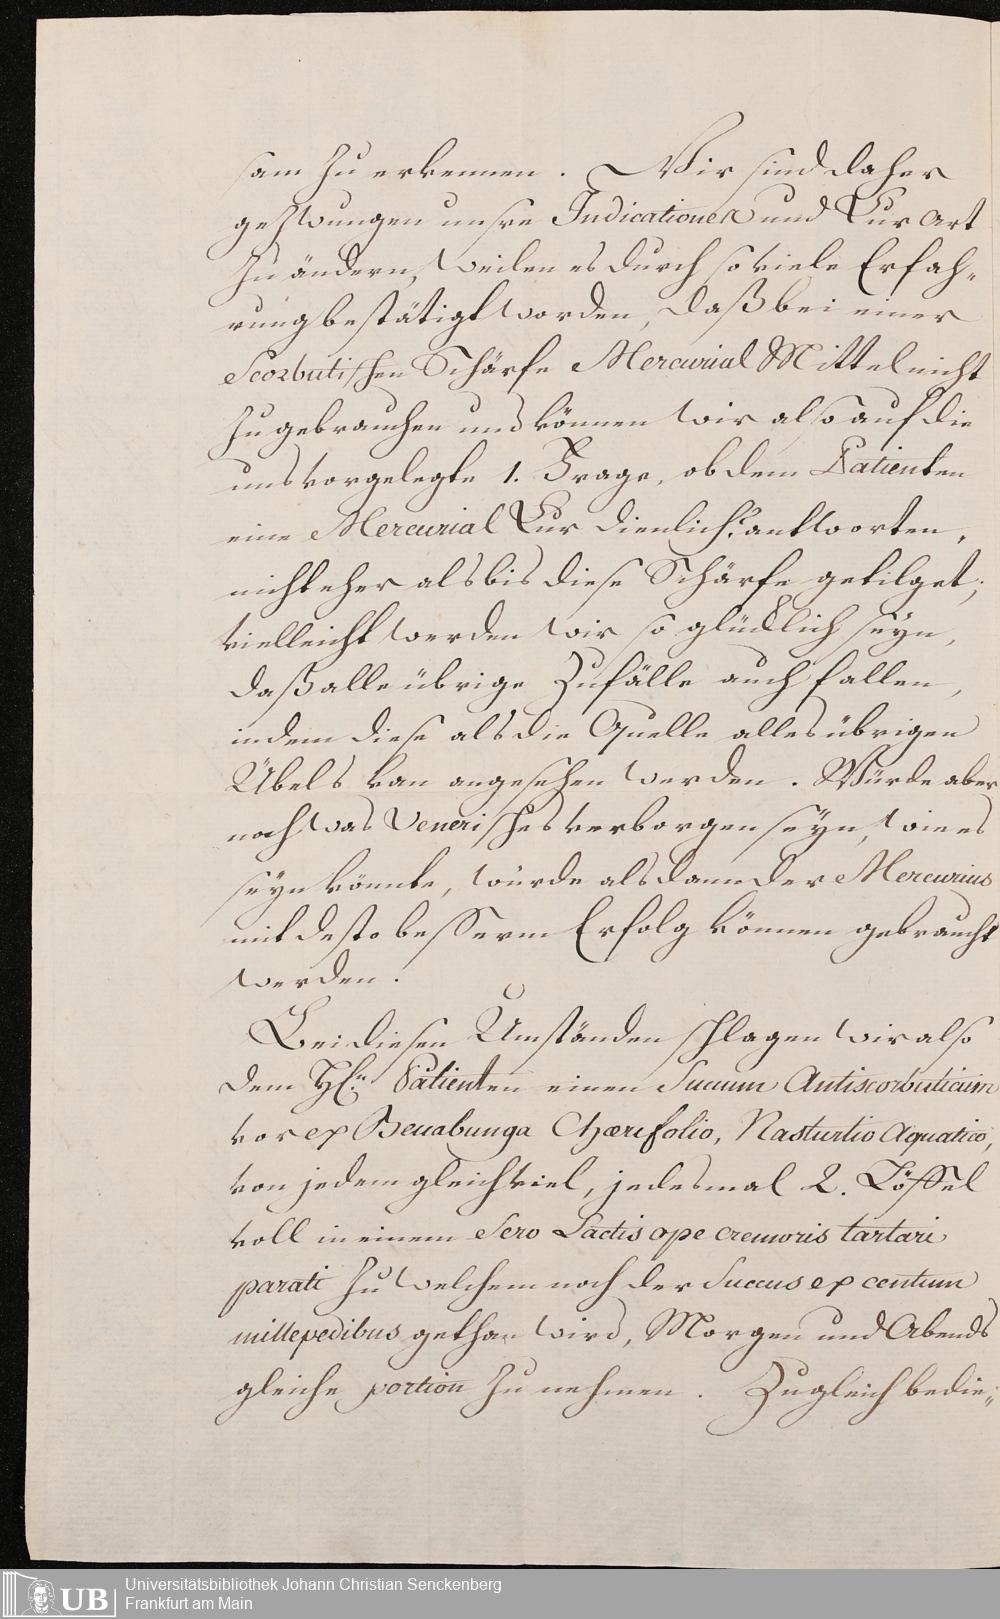 sam zu erkennen. Wir sind daher
gezwungen unsre Indicationen und Kur Art
zu ändern, weilen es durch so viele Erfah-
rung bestätigt worden, daß bei einer
Scorbutischen Schärfe Mercurial Mittel nicht
zu gebrauchen und können wir also auf die
uns vorgelegte 1. Frage, ob dem Patienten
eine Mercurial Kur dienlich? antworten,
nicht eher als bis diese Schärfe getilget;
vielleicht werden wir so glücklich seyn,
daß alle übrige Zufälle auch fallen,
indem diese als die Quelle alles übrigen
Übels kan angesehen werden. Würde aber
noch was Venerisches verborgen seyn, wie es
seyn könnte, würde alsdann der Mercurius
mit desto besserm Erfolg können gebraucht
werden.
Bei diesen Umständen schlagen wir also
dem H. Patienten einen Succum Antiscorbuticum
vor ex Beccabunga Chærifolio, Nasturtio Aquatico,
von jedem gleich viel, jedesmal 2. Löffel
voll in einem Sero Lactis ope cremoris tartari
parati zu welchem noch der Succus ex centum
millepedibus gethan wird, Morgen und Abends
gleiche portion zu nehmen. Zugleich bedie-
UB
Universitätsbibliothek Johann Christian Senckenberg
Frankfurt am Main